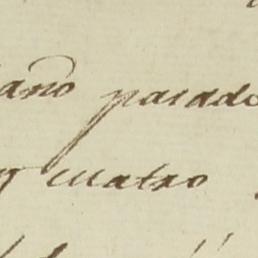 año parado
y cuatro